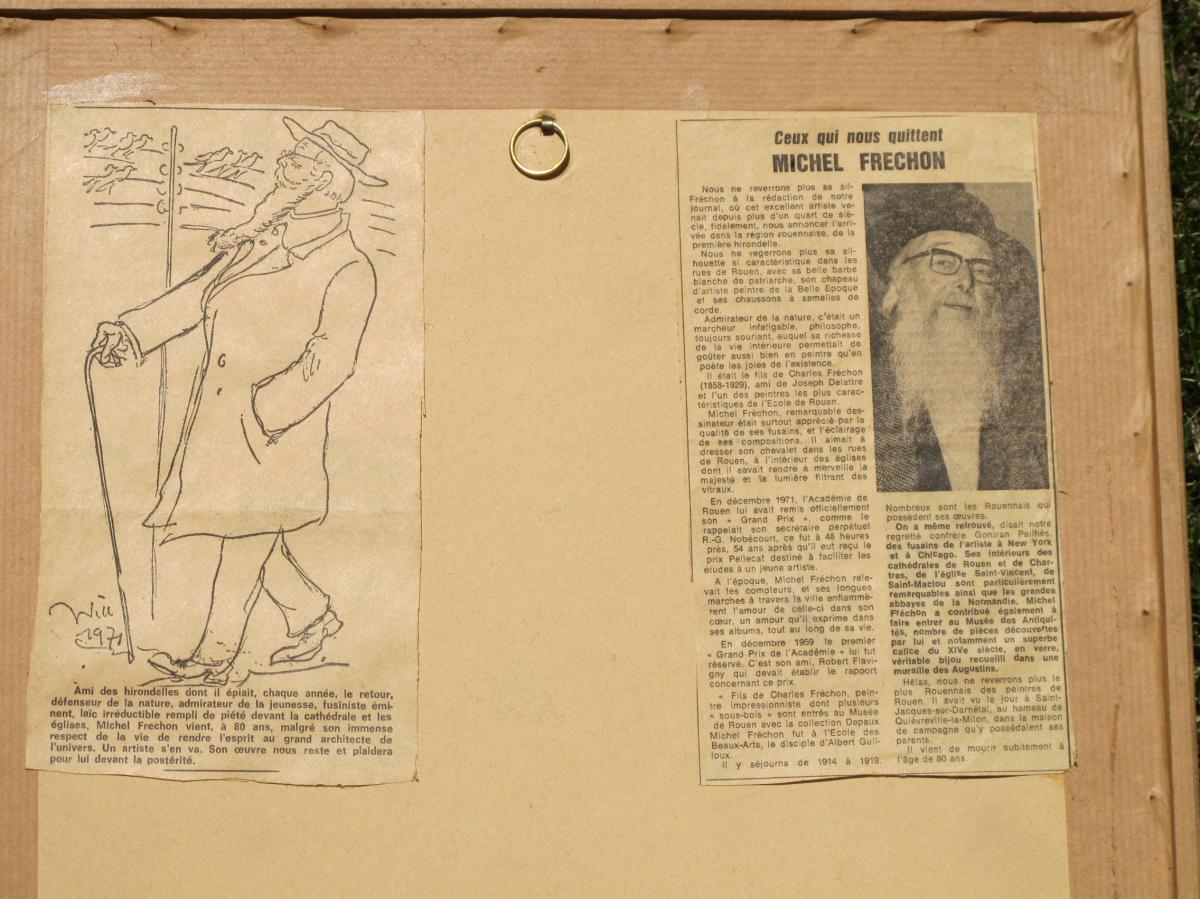 Will
1971
Ami des hirondelles dont il épiait, chaque année, le retour,
défenseur de la nature, admirateur de la jeunesse, fusiniste émi-
nent, laïc irréductible rempli de piété devant la cathédrale et les
églises, Michel Frechon vient, à 80 ans, malgré son immense
respect de la vie de rendre l'esprit au grand architecte de
l'univers. Un artiste s'en va. Son œuvre nous reste et plaidera
pour lui devant la postérité.
Ceux qui nous quittent
MICHEL FRECHON
Nous ne reverrons plus sa sil-
Fréchon à la rédaction de notre
journal, où cet excellent artiste ve-
nait depuis plus d'un quart de siè-
cle, fidèlement, nous annoncer l'arri-
vée dans la région rouennaise, de la
première hirondelle.
Nous ne regerrons plus sa sil-
houette si caractéristique dans les
rues de Rouen, avec sa belle barbe
blanche de patriarche, son chapeau
d'artiste peintre de la Belle Epoque
et ses chaussons à semelles de
corde.
Admirateur de la nature, c'était un
marcheur infatigable, philosophe,
toujours souriant, auquel sa richesse
de la vie intérieure permettait de
goûter aussi bien en peintre qu'en
poète les joies de l'existence.
Il était le fils de Charles Fréchon
(1858-1929), ami de Joseph Delattre
et l'un des peintres les plus carac-
téristiques de l'Ecole de Rouen.
Michel Fréchon, remarquable des-
sinateur était surtout apprécié par la
qualité de ses fusains, et l'éclairage
de ses compositions. Il aimait à
dresser son chevalet dans les rues
de Rouen, à l'intérieur des églises
dont il savait rendre à merveille la
majesté et la lumière filtrant des
vitraux.
En décembre 1971, l'Académie de
Rouen lui avait remis officiellement
son « Grand Prix », comme le
rappelait son secrétaire perpétuel
R.-G. Nobécourt, ce fut à 48 heures
près, 54 ans après qu'il eut reçu le
prix Pellecat destiné à faciliter les
études à un jeune artiste.
A l'époque, Michel Fréchon rele-
vait les compteurs, et ses longues
marches à travers la ville enflammè-
rent l'amour de celle-ci dans son
cœur, un amour qu'il exprime dans
ses albums, tout au long de sa vie.
En décembre 1959 le premier
« Grand Prix de l'Académie » lui fut
réservé. C'est son ami, Robert Flavi-
gny qui devait établir le rapport
concernant ce prix.
« Fils de Charles Fréchon, pein-
tre impressionniste dont plusieurs
« sous-bois » sont entrés au Musée
de Rouen avec la collection Depaux
Michel Fréchon fut à l'Ecole des
Beaux-Arts, le disciple d'Albert Guil-
loux.
Il y séjourna de 1914 à 1919.
Nombreux sont les Rouennais qui
possèdent ses œuvres.
On a même retrouvé, disait notre
regretté confrère Gontran Pailhès,
des fusains de l'artiste à New York
et à Chicago. Ses intérieurs des
cathédrales de Rouen et de Char-
tres, de l'église Saint-Vincent, de
Saint-Maclou sont particulièrement
remarquables ainsi que les grandes
abbayes de la Normandie. Michel
Fréchon a contribué également à
faire entrer au Musée des Antiqui-
tés, nombre de pièces découvertes
par lui et notamment un superbe
calice du XIVe siècle, en verre,
véritable bijou recueilli dans une
muraille des Augustins.
Hélas, nous ne reverrons plus le
plus Rouennais des peintres de
Rouen. Il avait vu le jour à Saint-
Jacques-sur-Darnétal, au hameau de
Quièvreville-la-Milon, dans la maison
de campagne qu'y possédaient ses
parents.
Il vient de mourir subitement à
l'âge de 80 ans.